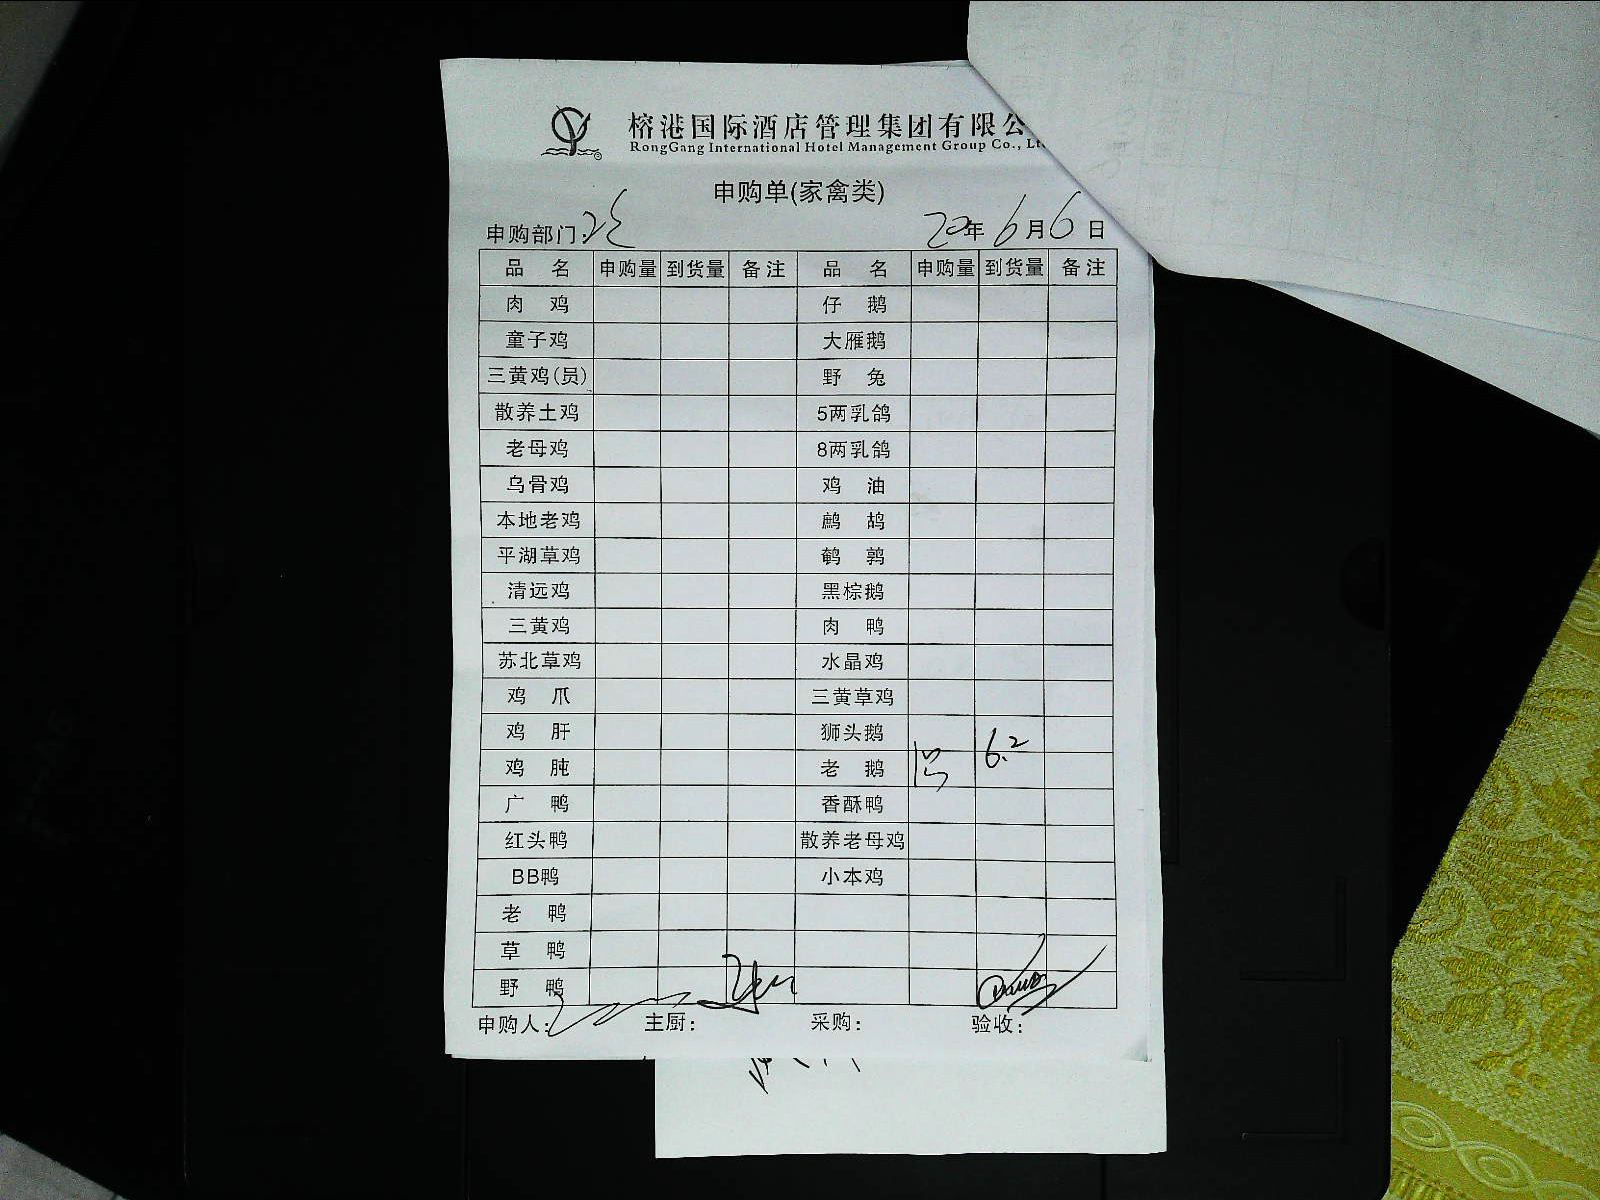 榕港国际酒店管理集团有限公
RongGang International Hotel Management Group Co., Lt
申购单(家禽类)
申购部门: 20年6月6日
品名 申购量 到货量 备注 品名 申购量 到货量 备注
肉鸡 仔鹅
童子鸡 大雁鹅
三黄鸡(员) 野兔
散养土鸡 5两乳鸽
老母鸡 8两乳鸽
乌骨鸡 鸡油
本地老鸡 鹧鸪
平湖草鸡 鹌鹑
清远鸡 黑棕鹅
三黄鸡 肉鸭
苏北草鸡 水晶鸡
鸡爪 三黄草鸡
鸡肝 狮头鹅
鸡肫 老鹅 6.2
广鸭 香酥鸭
红头鸭 散养老母鸡
BB鸭 小本鸡
老鸭
草鸭
野鸭
申购人: 主厨: 采购: 验收: